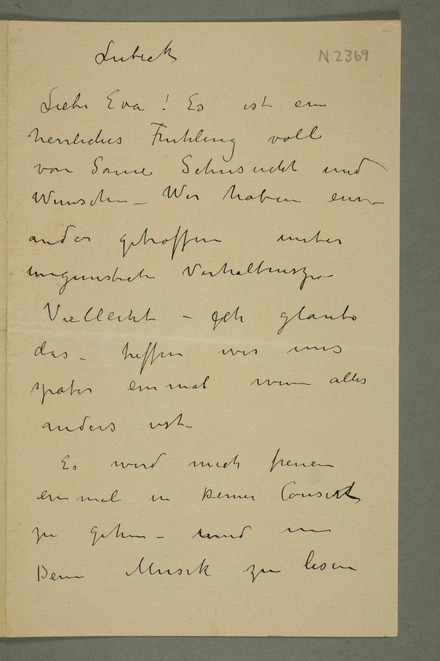 Lubeck
N 2369
Liebe Eva! Es ist ein
herrliches Fruhling voll
von Sonne Sehnsucht und
Wunschen – Wir haben ein-
ander getroffen unter
ungunstich Verhaltnisse
Vielleicht – Ich glaube
das – treffen wir uns
spater einmal wenn alles
anders ist
Es wird mich freuen
einmal in Deiner Consert
zu gehen – und in
Dein Musik zu lesen